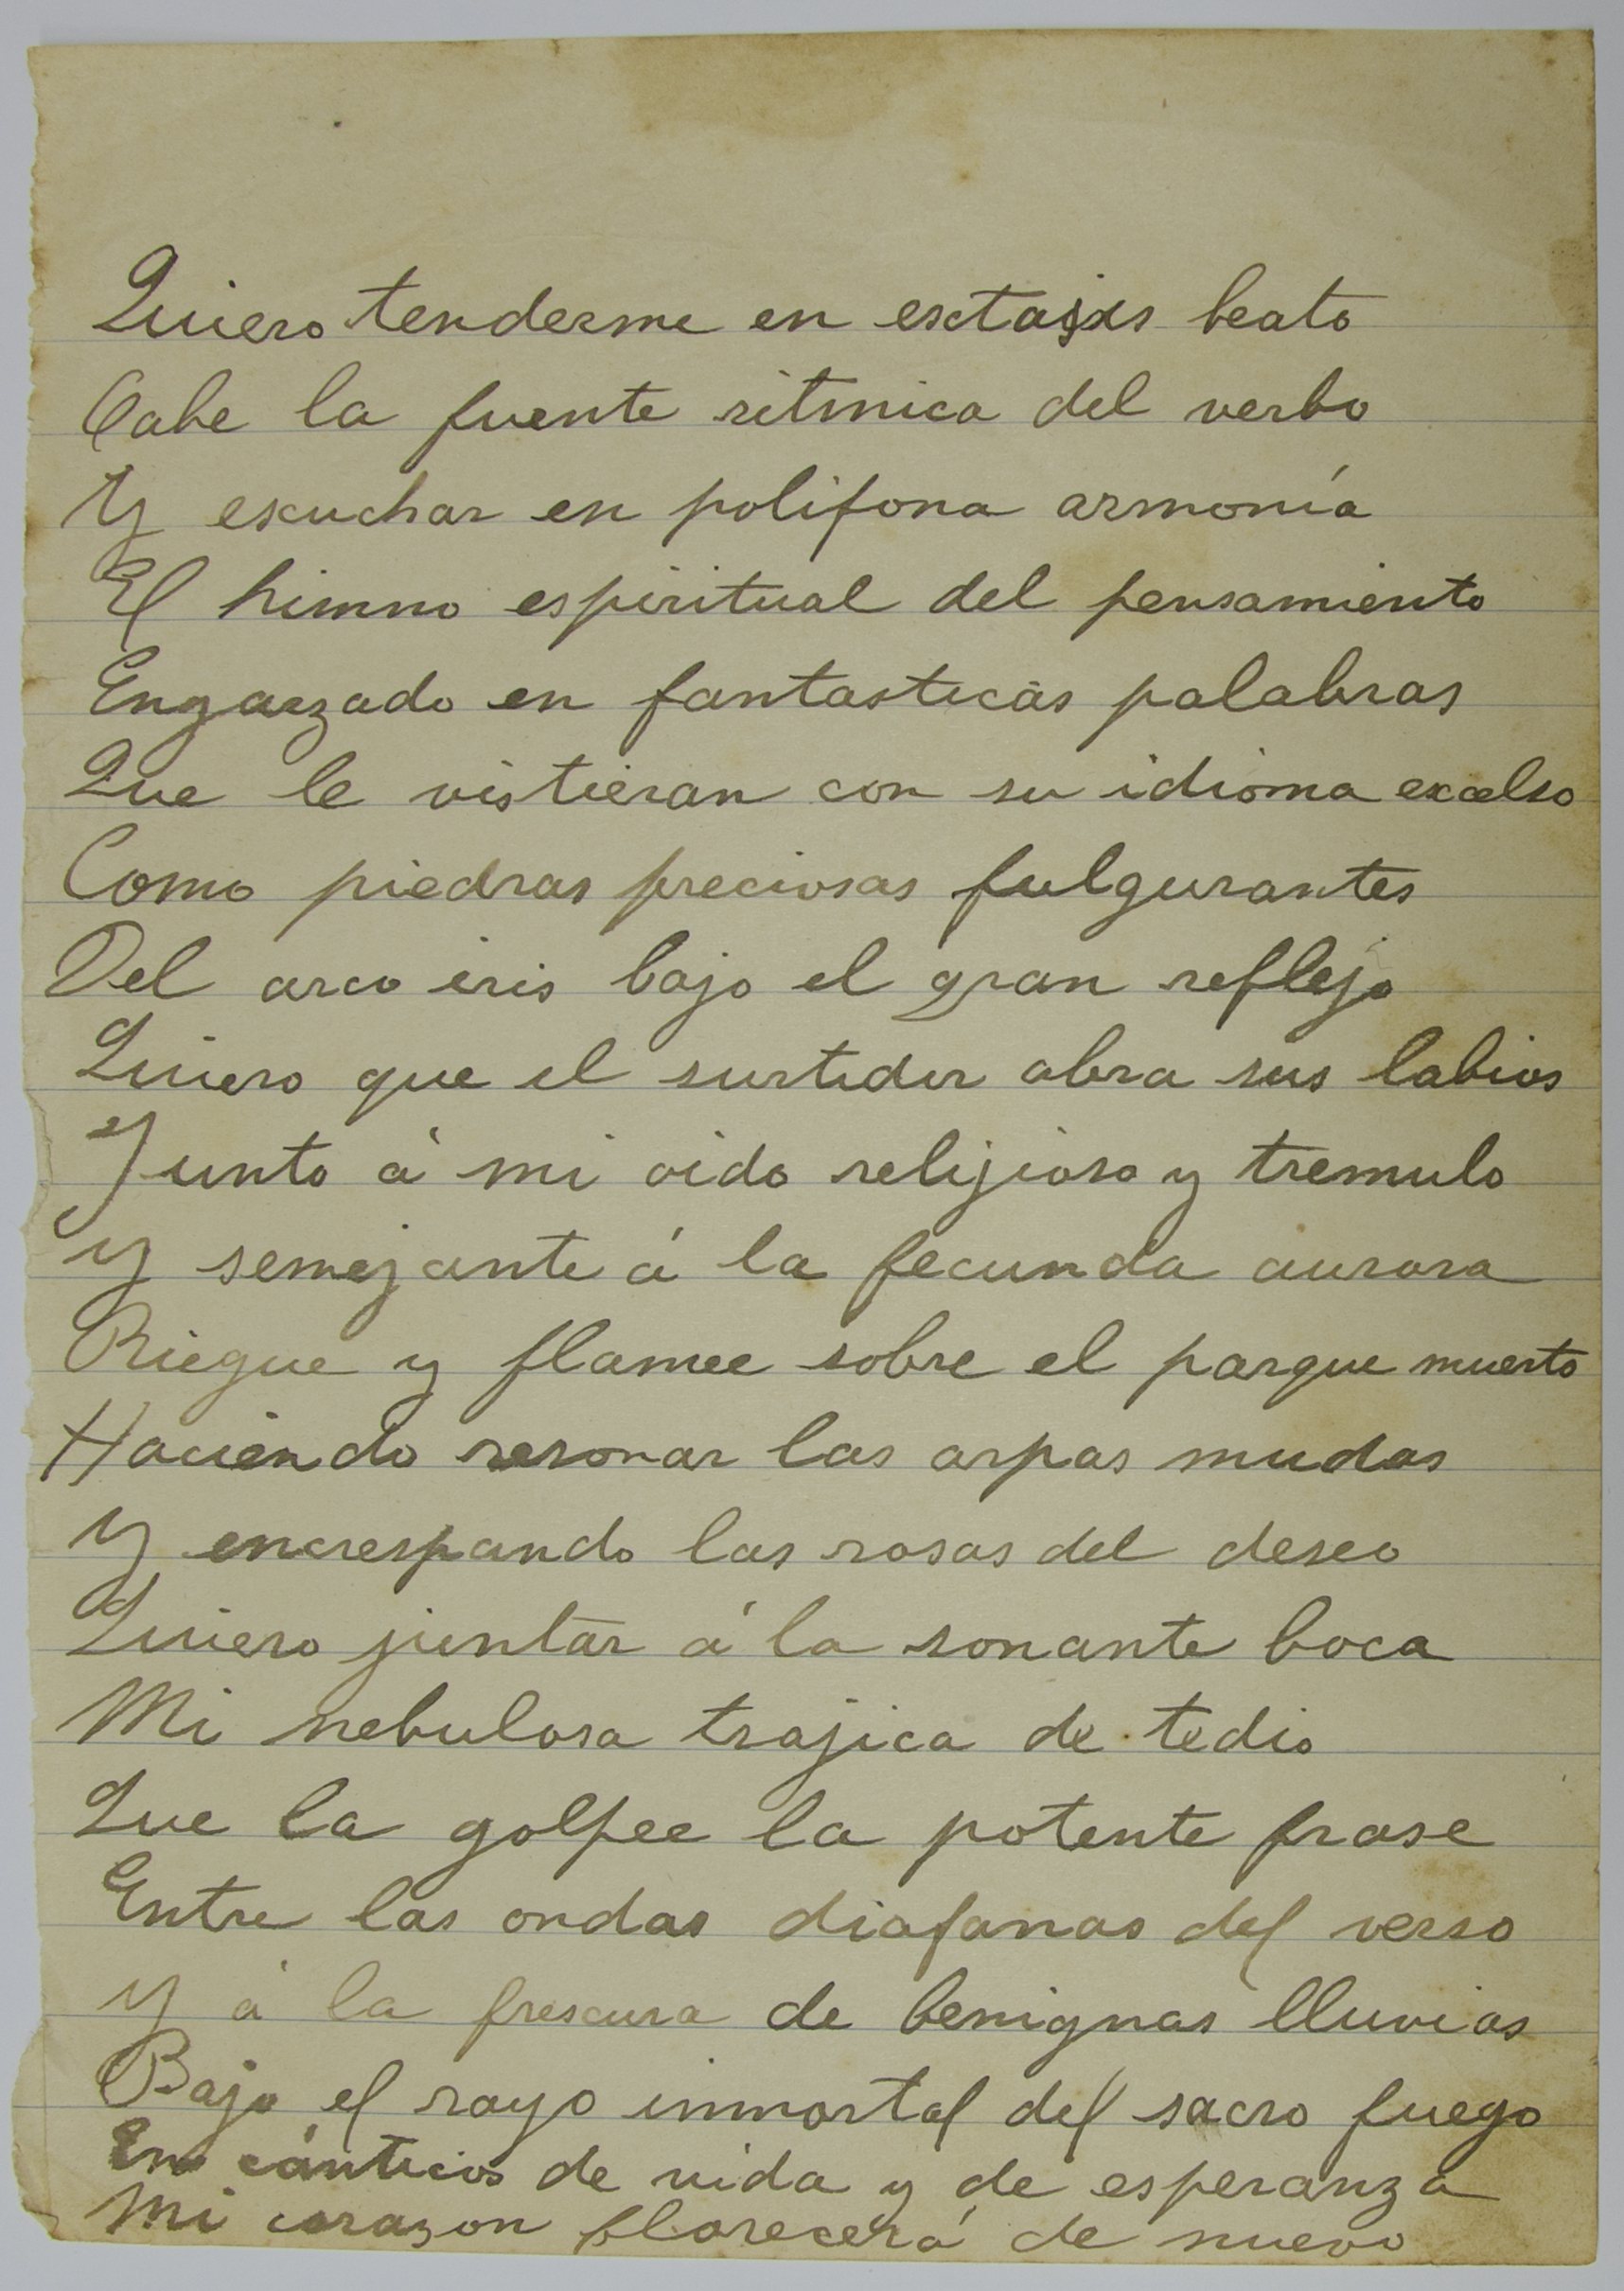 Quiero tenderme en esctasis beato
Cabe la fuente ritmica del verbo
Y escuchar en polifona armonía
El himno espiritual del pensamiento
Engarzado en fantasticas palabras
Que le vistieran con su idioma excelso
Como piedras preciosas fulgurantes
Del arco iris bajo el gran reflejo
Quiero que el surtidor abra sus labios
Junto á mi oido relijioso y tremulo
Y semejante á la fecunda aurora
Riegue y flamee sobre el parque muerto
Haciendo resonar las arpas mudas
Y encrespando las rosas del deseo
Quiero juntar á la sonante boca
Mi nebulosa trajica de tedio
Que la golpee la potente frase
Entre las ondas diafanas del verso
Y á la frescura de benignas lluvias
Bajo el rayo inmortal del sacro fuego
En cánticos de vida y de esperanza
Mi corazon florecerá de nuevo